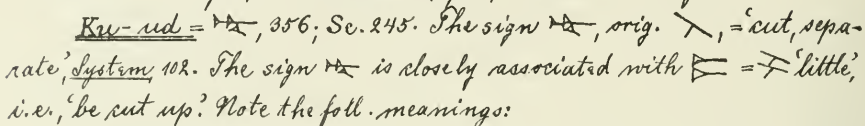 Ku-ud = 𒋻, 356; Sc. 245. The sign 𒋻, orig. , = 'cut, sepa-
rate', System, 102. The sign 𒋻 is closely associated with = 'little',
i.e., 'be cut up'. Note the foll. meanings: